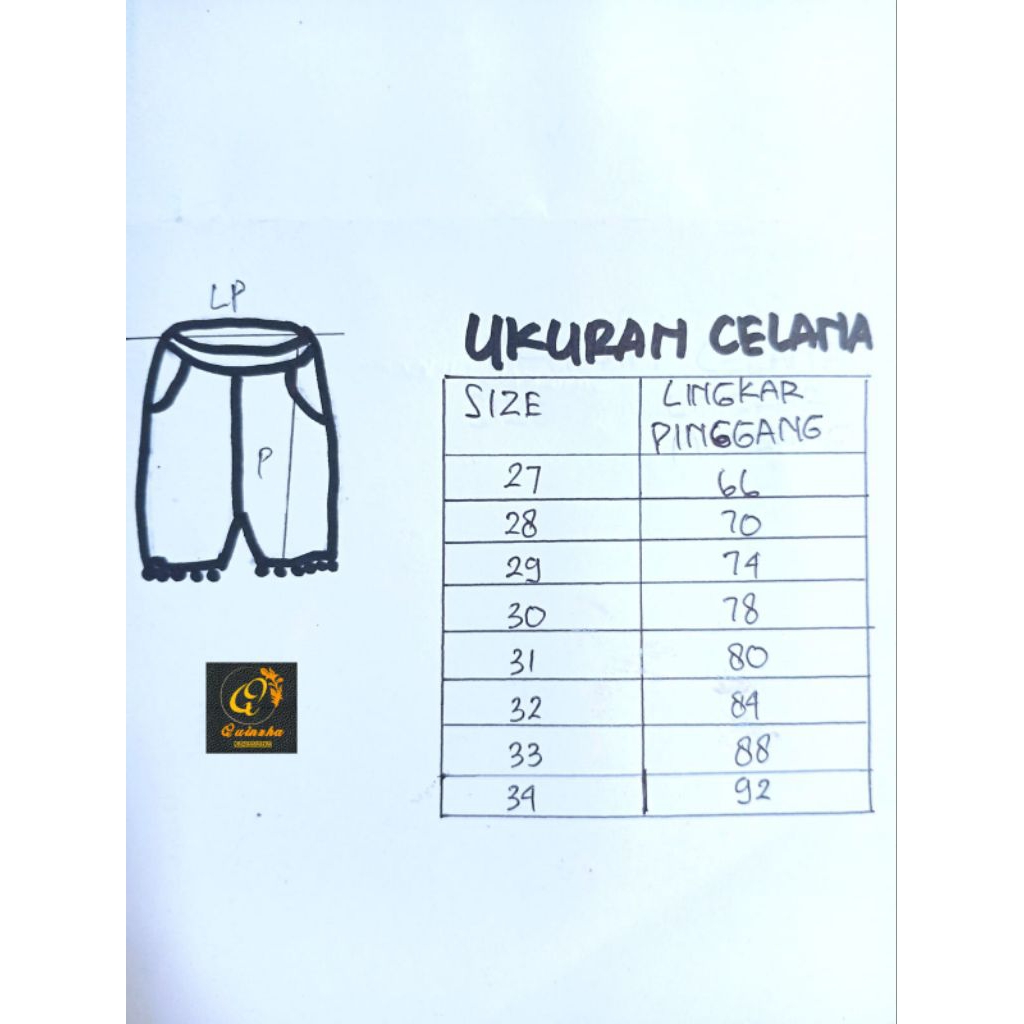 LP
P
UKURAN CELANA
SIZE LINGKAR PINGGANG
27 66
28 70
29 74
30 78
31 80
32 84
33 88
34 92
Quinsha